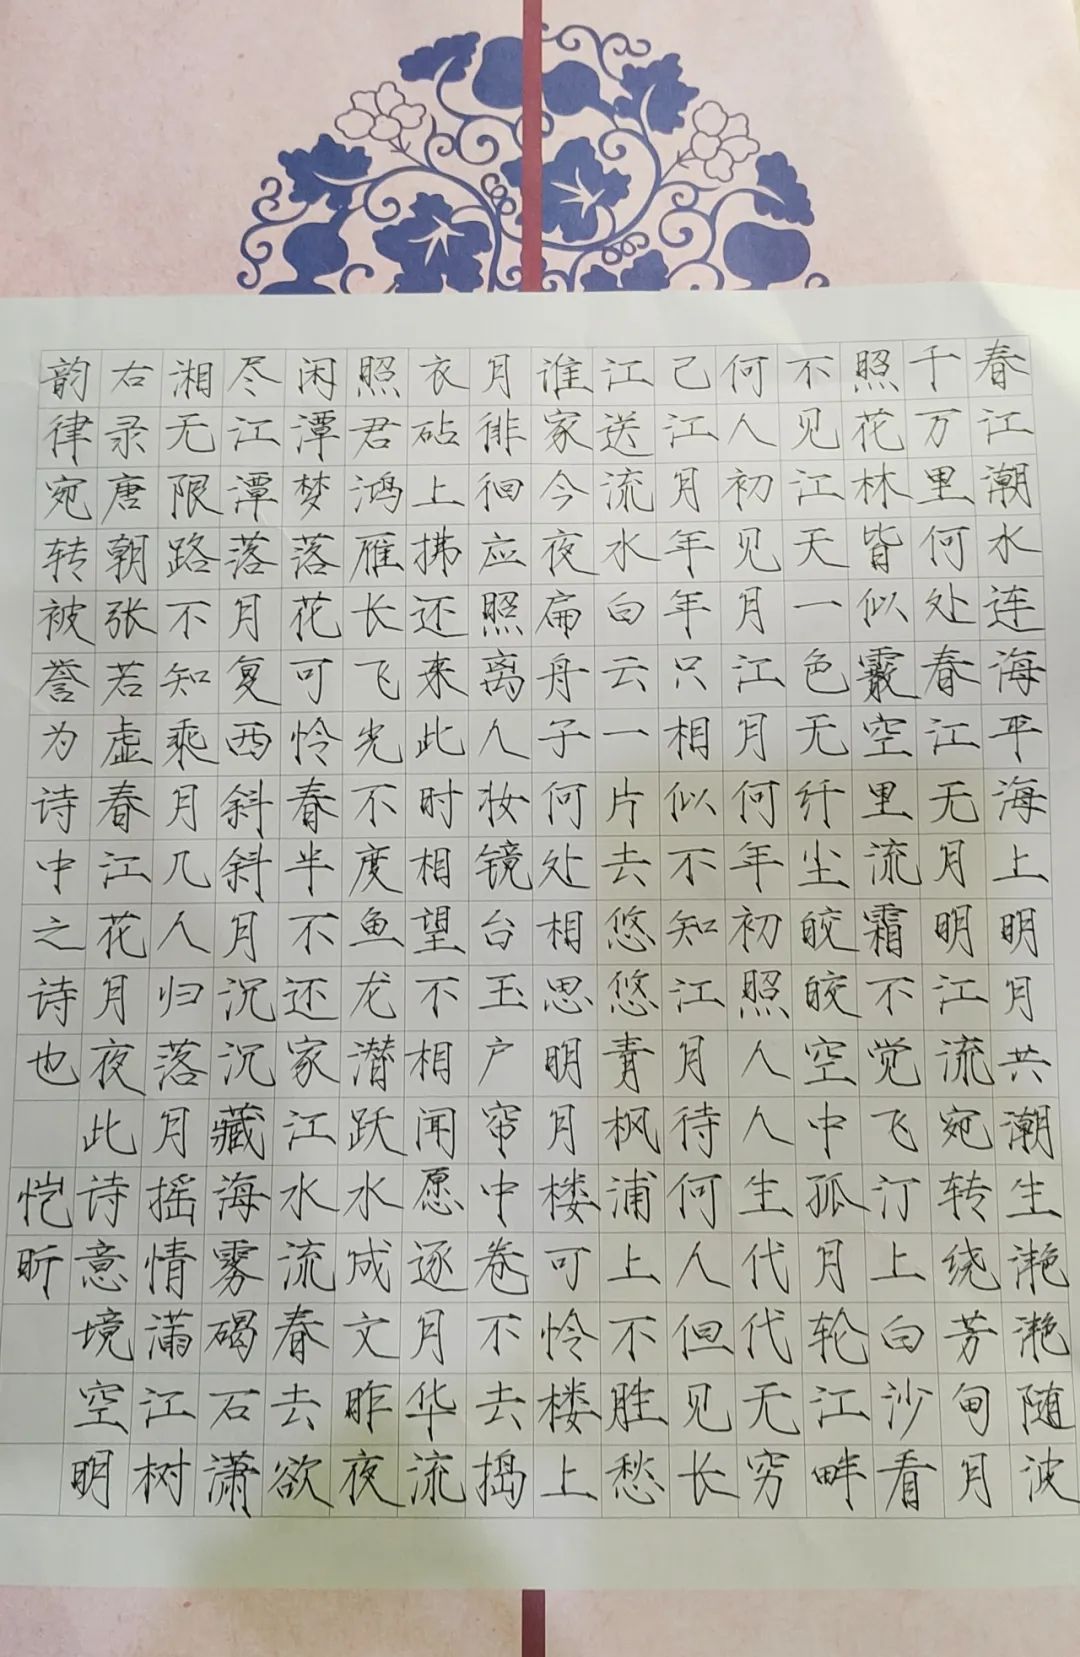 春江潮水连海平海上明月共潮生滟滟随波
千万里何处春江无月明江流宛转绕芳甸月
照花林皆似霰空里流霜不觉飞汀上白沙看
不见江天一色无纤尘皎皎空中孤月轮江畔
何人初见月江月何年初照人人生代代无穷
己江月年年只相似不知江月待何人但见长
江送流水白云一片去悠悠青枫浦上不胜愁
谁家今夜扁舟子何处相思明月楼可怜楼上
月徘徊应照离人妆镜台玉户帘中卷不去捣
衣砧上拂还来此时相望不相闻愿逐月华流
照君鸿雁长飞光不度鱼龙潜跃水成文昨夜
闲潭梦落花可怜春半不还家江水流春去欲
尽江潭落月复西斜斜月沉沉藏海雾碣石潇
湘无限路不知乘月几人归落月摇情满江树
右录唐朝张若虚春江花月夜此诗意境空明
韵律宛转被誉为诗中之诗也 恺昕